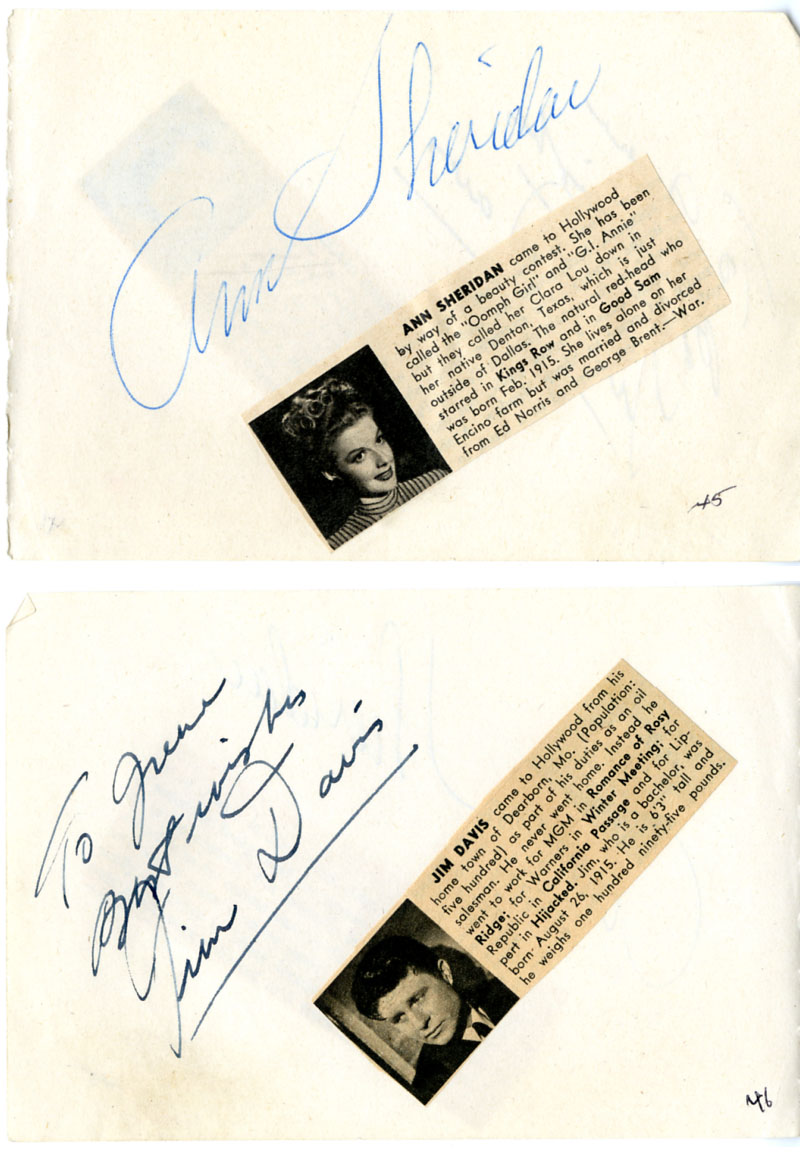 Ann Sheridan
ANN SHERIDAN came to Hollywood
by way of a beauty contest. She has been
called the "Oomph Girl" and "G.I. Annie"
but they called her Clara Lou down in
her native Denton, Texas, which is just
outside of Dallas. The natural red-head who
starred in Kings Row and in Good Sam
was born Feb. 1915. She lives alone on her
Encino farm but was married and divorced
from Ed Norris and George Brent.—War.
45
To Irene
Best wishes
Jim Davis
JIM DAVIS came to Hollywood from his
home town of Dearborn, Mo. (Population:
five hundred) as part of his duties as an oil
salesman. He never went home. Instead he
went to work for MGM in Romance of Rosy
Ridge; for Warners in Winter Meeting; for
Republic in California Passage and for Lip-
pert in Hijacked. Jim, who is a bachelor, was
born August 26, 1915. He is 6'3" tall and
he weighs one hundred ninety-five pounds.
46